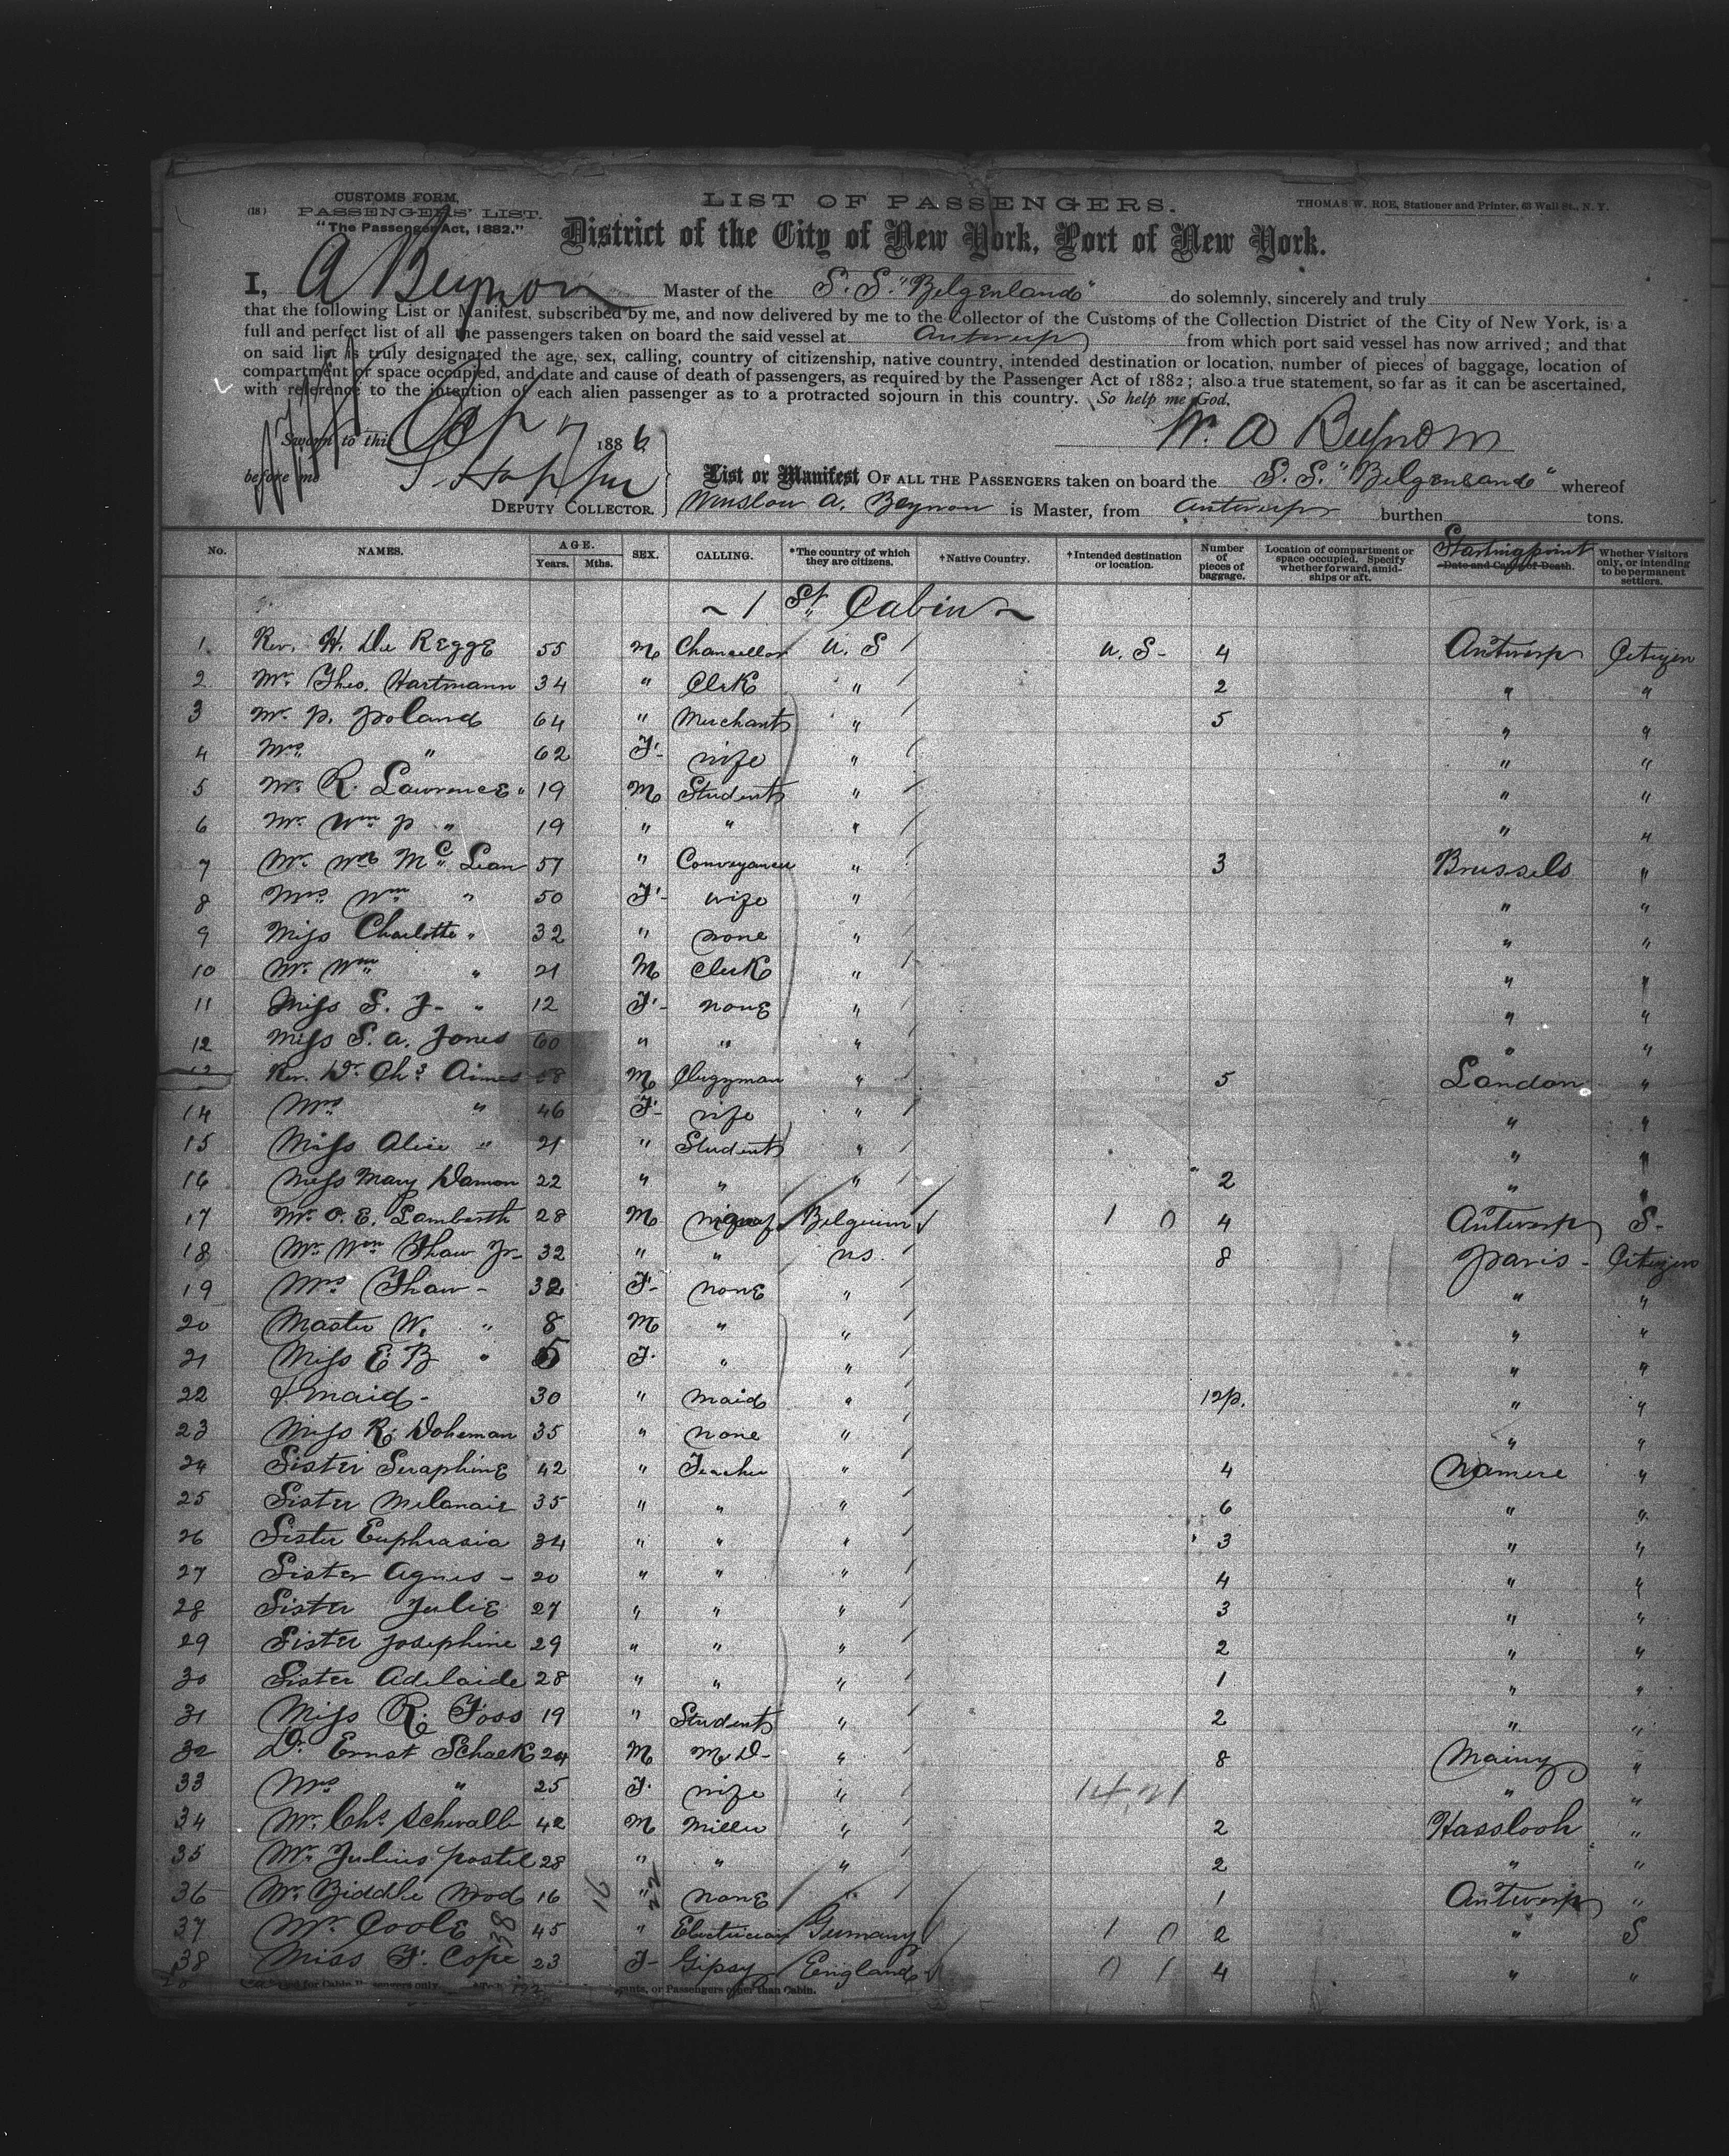 (18) CUSTOMS FORM,
PASSENGERS' LIST.
"The Passenger Act, 1882."
LIST OF PASSENGERS.
THOMAS W. ROE, Stationer and Printer, 63 Wall St., N. Y.
District of the City of New York, Port of New York.
I, A Beynon Master of the S. S. "Belgenland" do solemnly, sincerely and truly
that the following List or Manifest, subscribed by me, and now delivered by me to the Collector of the Customs of the Collection District of the City of New York, is a
full and perfect list of all the passengers taken on board the said vessel at Antwerp from which port said vessel has now arrived; and that
on said list is truly designated the age, sex, calling, country of citizenship, native country, intended destination or location, number of pieces of baggage, location of
compartment or space occupied, and date and cause of death of passengers, as required by the Passenger Act of 1882; also a true statement, so far as it can be ascertained,
with reference to the intention of each alien passenger as to a protracted sojourn in this country. So help me God.
Sworn to this 7 1886
W. A Beynon
before me
DEPUTY COLLECTOR.
List or Manifest OF ALL THE PASSENGERS taken on board the S. S. "Belgenland" whereof
Winslow A. Beynon is Master, from Antwerp burthen tons.
No. NAMES. AGE. Years. Mths. SEX. CALLING. *The country of which they are citizens. †Native Country. †Intended destination or location. Number of pieces of baggage. Location of compartment or space occupied. Specify whether forward, amidships or aft. Startingpoint Date and Cause of Death. Whether Visitors only, or intending to be permanent settlers.
~ 1 St. Cabin ~
1 Rev. H. De Regge 55 M Chancellor U. S U. S- 4 Antwerp Citizen
2 Mr. Theo. Hartmann 34 " Clerk " 2 " "
3 Mr. P. Poland 64 " Merchant " 5 " "
4 Mrs. " 62 F- wife " " "
5 Mr. R. Lawrence " 19 M Student " " "
6 Mr. Wm P " 19 " " " " "
7 Mr. Wm Mc Lean 57 " Conveyancer " 3 Brussels "
8 Mrs. Wm " 50 F- wife " " "
9 Miss Charlotte " 32 " none " " "
10 Mr. Wm " 21 M Clerk " " "
11 Miss S. J- " 12 F- none " " "
12 Miss S. A. Jones 60 " " " " "
13 Rev. Dr. Chs. Aimes 58 M Clergyman " 5 London "
14 Mrs " 46 F- wife " " "
15 Miss Alice " 21 " Student " " "
16 Miss Mary Damon 22 " " " 2 " "
17 Mr. O. E. Lamberth 28 M Belguim 1 0 4 Antwerp S-
18 Mr. Wm Thaw Jr- 32 " " U.S. 8 Paris - Citizen
19 Mrs Thaw - 32 F- none " " "
20 Master W. " 8 M " " " "
21 Miss E B " 5 F. " " " "
22 & maid - 30 " maid " 12p. " "
23 Miss R. Doheman 35 " none " " "
24 Sister Seraphine 42 " Teacher " 4 Namere "
25 Sister Melanair 35 " " " 6 " "
26 Sister Euphrasia 34 " " " 3 " "
27 Sister Agnes - 20 " " " 4 " "
28 Sister Julie 27 " " " 3 " "
29 Sister Josephine 29 " " " 2 " "
30 Sister Adelaide 28 " " " 1 " "
31 Miss R. Foss 19 " Student " 2 " "
32 Dr. Ernst Schaek 24 M M D- " 8 Mainz "
33 Mrs " 25 F. wife " 14,21 " "
34 Mr. Chs. Schwalb 42 M Miller " 2 Hasslooh "
35 Mr. Julius Postel 28 " " " 2 " "
36 Mr. Biddle Wood 16 " none " 1 Antwerp "
37 Mr. Coole 45 " Electrician Germany 1 0 2 " S
38 Miss F. Cope 23 F- Gipsy England 0 1 4 " "
16 22 38
for Cabin Passengers only. or Passengers other than Cabin.